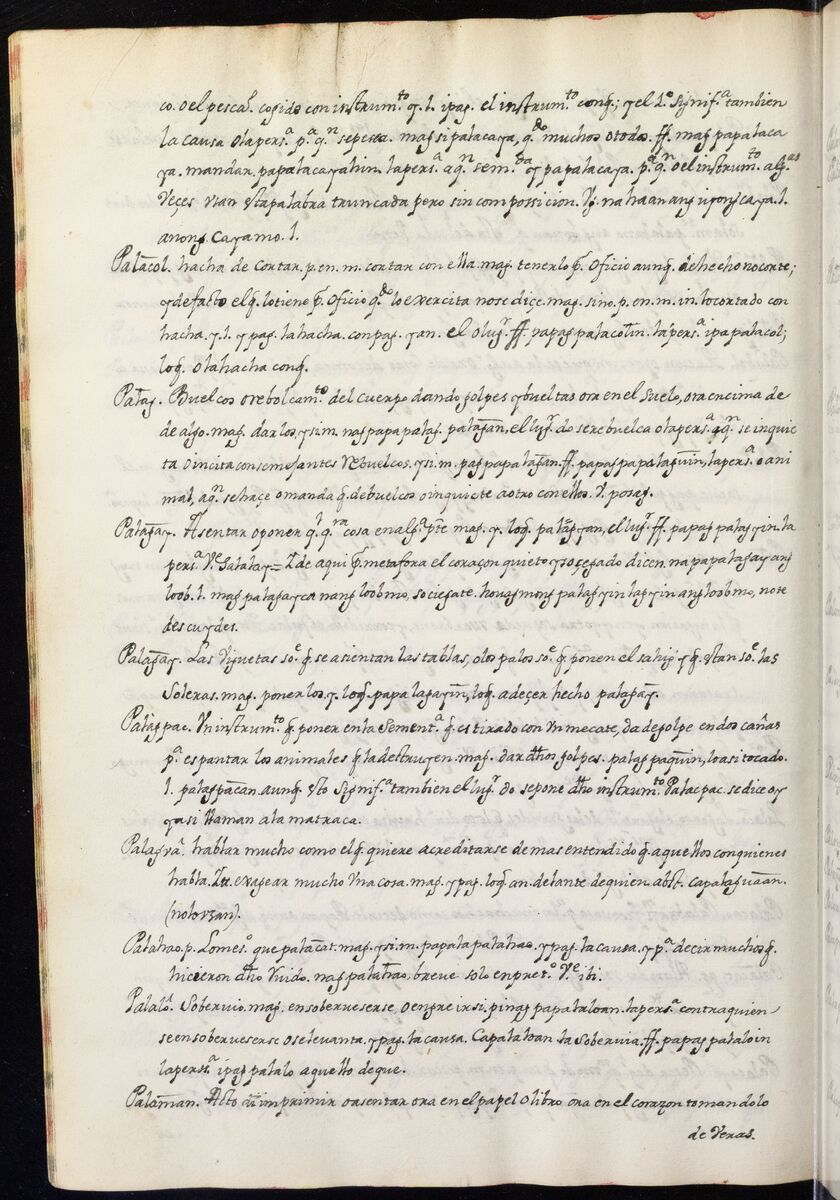 co. o el pescad. cogido con instrum.to y. l. ipag. el instrum.to conq̃; y el 2.o signif.a tambien
la causa o la pers.a p.a q.n se pesca. mag si palacaya, q.do muchos o todos. ff. mag papalaca
ya. mandar. papalacayahin. la pers.a a q.n se m.da y papalacaya. p.a q.n o el instrum.to alg.as
veçes usan esta palabra truncada pero sin compossicion. Vg. na haan ang iyong caya. l.
anong cayamo. l.
Palacol. hacha de cortar. p. en. m. cortar con ella. mag. tenerlo p.r oficio aunq̃. de hecho no corte;
y de facto el q̃. lo tiene p.r oficio q.do lo exercita no se diçe. mag. sino. p. en. m. in. lo cortado con
hacha. y. l. y pag. la hacha. con pag. y an. el o lug.r ff. papag palacolin. la pers.a ipapalacol;
loq̃. o la hacha conq̃.
Palag. Buelcos o rebolcam.to del cuerpo dando golpes y bueltas ora en el suelo, ora encima de
de algo. mag. darlos, y si. m. nag papa palag. palagan, el lug.r do se rebuelca o la pers.a a q.n se inquie
ta o incita con semejantes rebuelcos. y si. m. pag papalagan. ff. papag papalaguin, la pers.a o ani
mal, a q.n se haçe o manda q̃. de buelcos o inquiete a otro con ellos. V. posag.
Palagay. Asentar o poner q.l q.ra cosa en alg.a p.te mag. y. loq̃. palagyan, el lug.r ff. papag palagyin. la
pers.a V.e Salalay = Y de aqui p.r metafora el coraçon quieto y soçegado dicen. na papalagay ang
loob. l. mag palagay ca nang loob mo, sociegate. houag mong palagyin lagyin ang loob mo, no te
descuydes.
Palagay. Las viguetas so.e q̃ se asientan las tablas, o los palos so.e q̃. ponen el sahig y q̃. estan so.e las
Soleras. mag. ponerlos, y. loq̃. papalagayin, loq̃. a deçer hecho palagay.
Palagpac. Un instrum.to q̃. poner en la sement.a q̃. es tirado con un mecate, da de golpe en dos cañas
p.a espantar los animales q̃ la destruyen. mag. dar dhos golpes. palagpaquin, lo asi tocado.
l. palagpacan. aunq̃. esto signif.a tambien el lug.r do se pone dho instrum.to Palacpac. se dice oy
y asi llaman a la matraca.
Palagva. hablar mucho como el q̃. quiere acreditarse de mas entendido q̃. aquellos con quienes
habla. It. exagear mucho una cosa. mag. y pag. loq̃. an. delante de quien. abst. capalaguaan.
(no lo usan).
Palahao. p. Lo mes.o que palacat. mag. y si. m. papala palahao. y pag. la causa, y p.a decir muchos q̃.
hicieron dho ruido. nag palahao, breve solo en pret.o V.e ibi.
Palalo. Sobervio. mag. ensoberveserse, o engreirsi. pinag papalaloan. la pers.a contra quien
se ensoberveserse o se levanta. y pag. la causa. Capalaloan. la Sobervia. ff. papag palaloin
la pers.a ipag palalo aquello de que.
Palaman. Acto imprimir o asentar ora en el papel o libro ora en el corazon tomandolo
de veras.